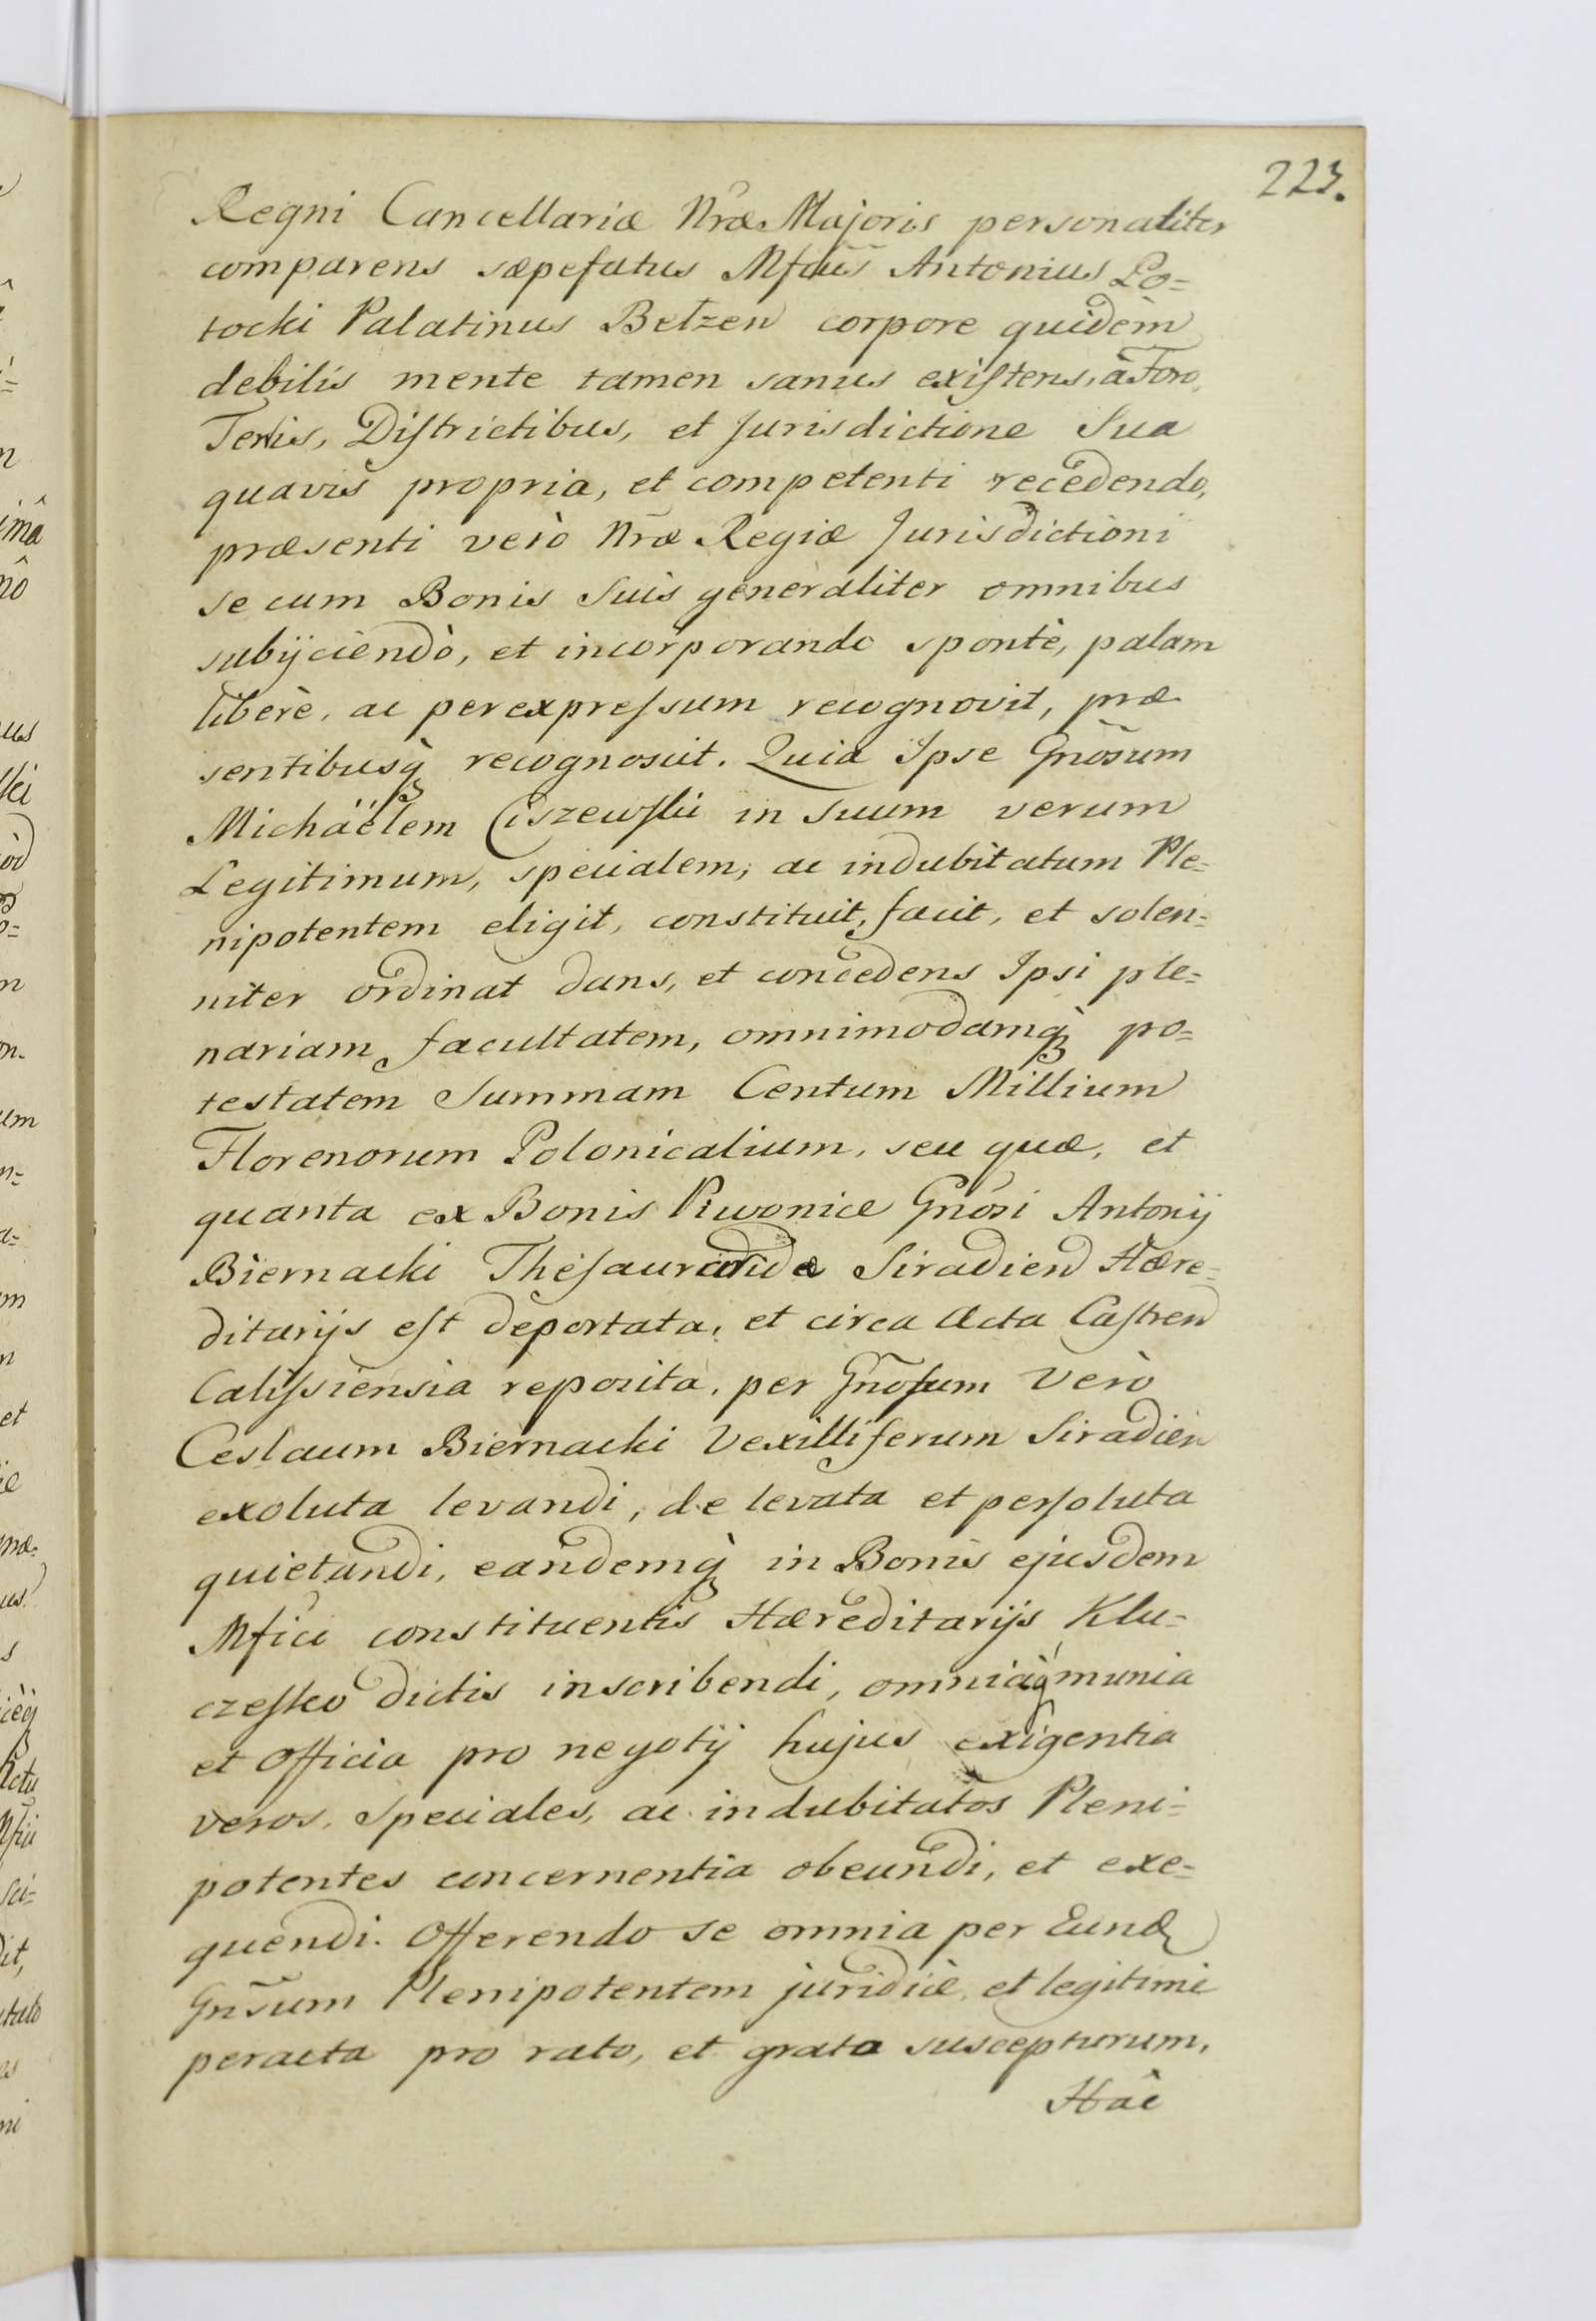 223.
Regni Cancellariæ Nræ Majoris personaliter
comparens sæpefatus Mfcus Antonius Po=
tocki Palatinus Belzen corpore quidèm
debilis mente tamen sanus existens, à Foro,
Terris, Districtibus, et Jurisdictione Sua
quavis propria, et competenti recedendo,
præsenti verò Nræ Regiæ Jurisdictioni
se cum Bonis Suis generaliter omnibus
subijciendò, et incorporando spontè, palam
liberè, ac per expressum recognovit, præ
sentibusq̀ recognoscit. Quia Ipse Gnõsum
Michäelem Ciszewski in Suum verum
Legitimum, specialem, ac indubitatum Ple=
nipotentem eligit, constituit, facit, et solen=
niter ordinat dans, et concedens Ipsi ple=
nariam facultatem, omnimodamq̀ po=
testatem Summam Centum Millium
Florenorum Polonicalium, seu quæ, et
quanta ex Bonis Piwonice Gnõsi Antonij
Biernacki Siradien Hære=
ditarijs est deportata, et circa Acta Castren
Calissiensia reposita, per Gnõsum verò
Ceslaum Biernacki Vexilliferum Siradien
exoluta levandi, de levata et persoluta
quietandi, eandemq̀ in Bonis ejusdem
Mfici constituentis Hæreditarijs Klu=
czesko dictis inscribendi, omniaq̀ munia
et Officia pro negotij hujus exigentia
veros, Speciales, ac indubitatos Pleni=
potentes concernentia obeundi, et exe=
quendi. Offerendo se omnia per Eund
Gnsum Plenipotentem juridicè, et legitimè
peracta pro rato, et grata suscepturum,
Hâc